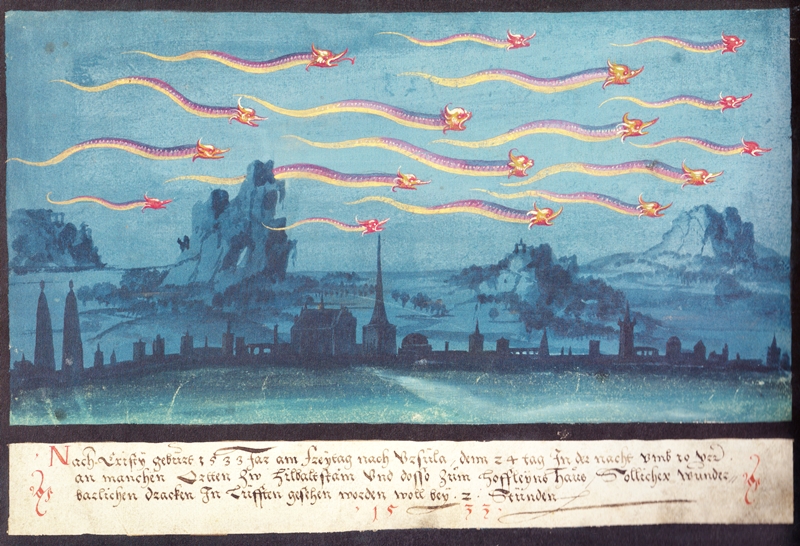 Nach Cristÿ geburt 1533 Jar am freÿtag nach Ursula dem 24 tag In der nacht umb 10 Vr
an manchen Ortten Zw Hilbaltstain Und dosso Zum Hoffleyns Haus Sollicher wunder
barlichen Dracken In Lufften gesehen worden woll bey 2 Stunden
1533